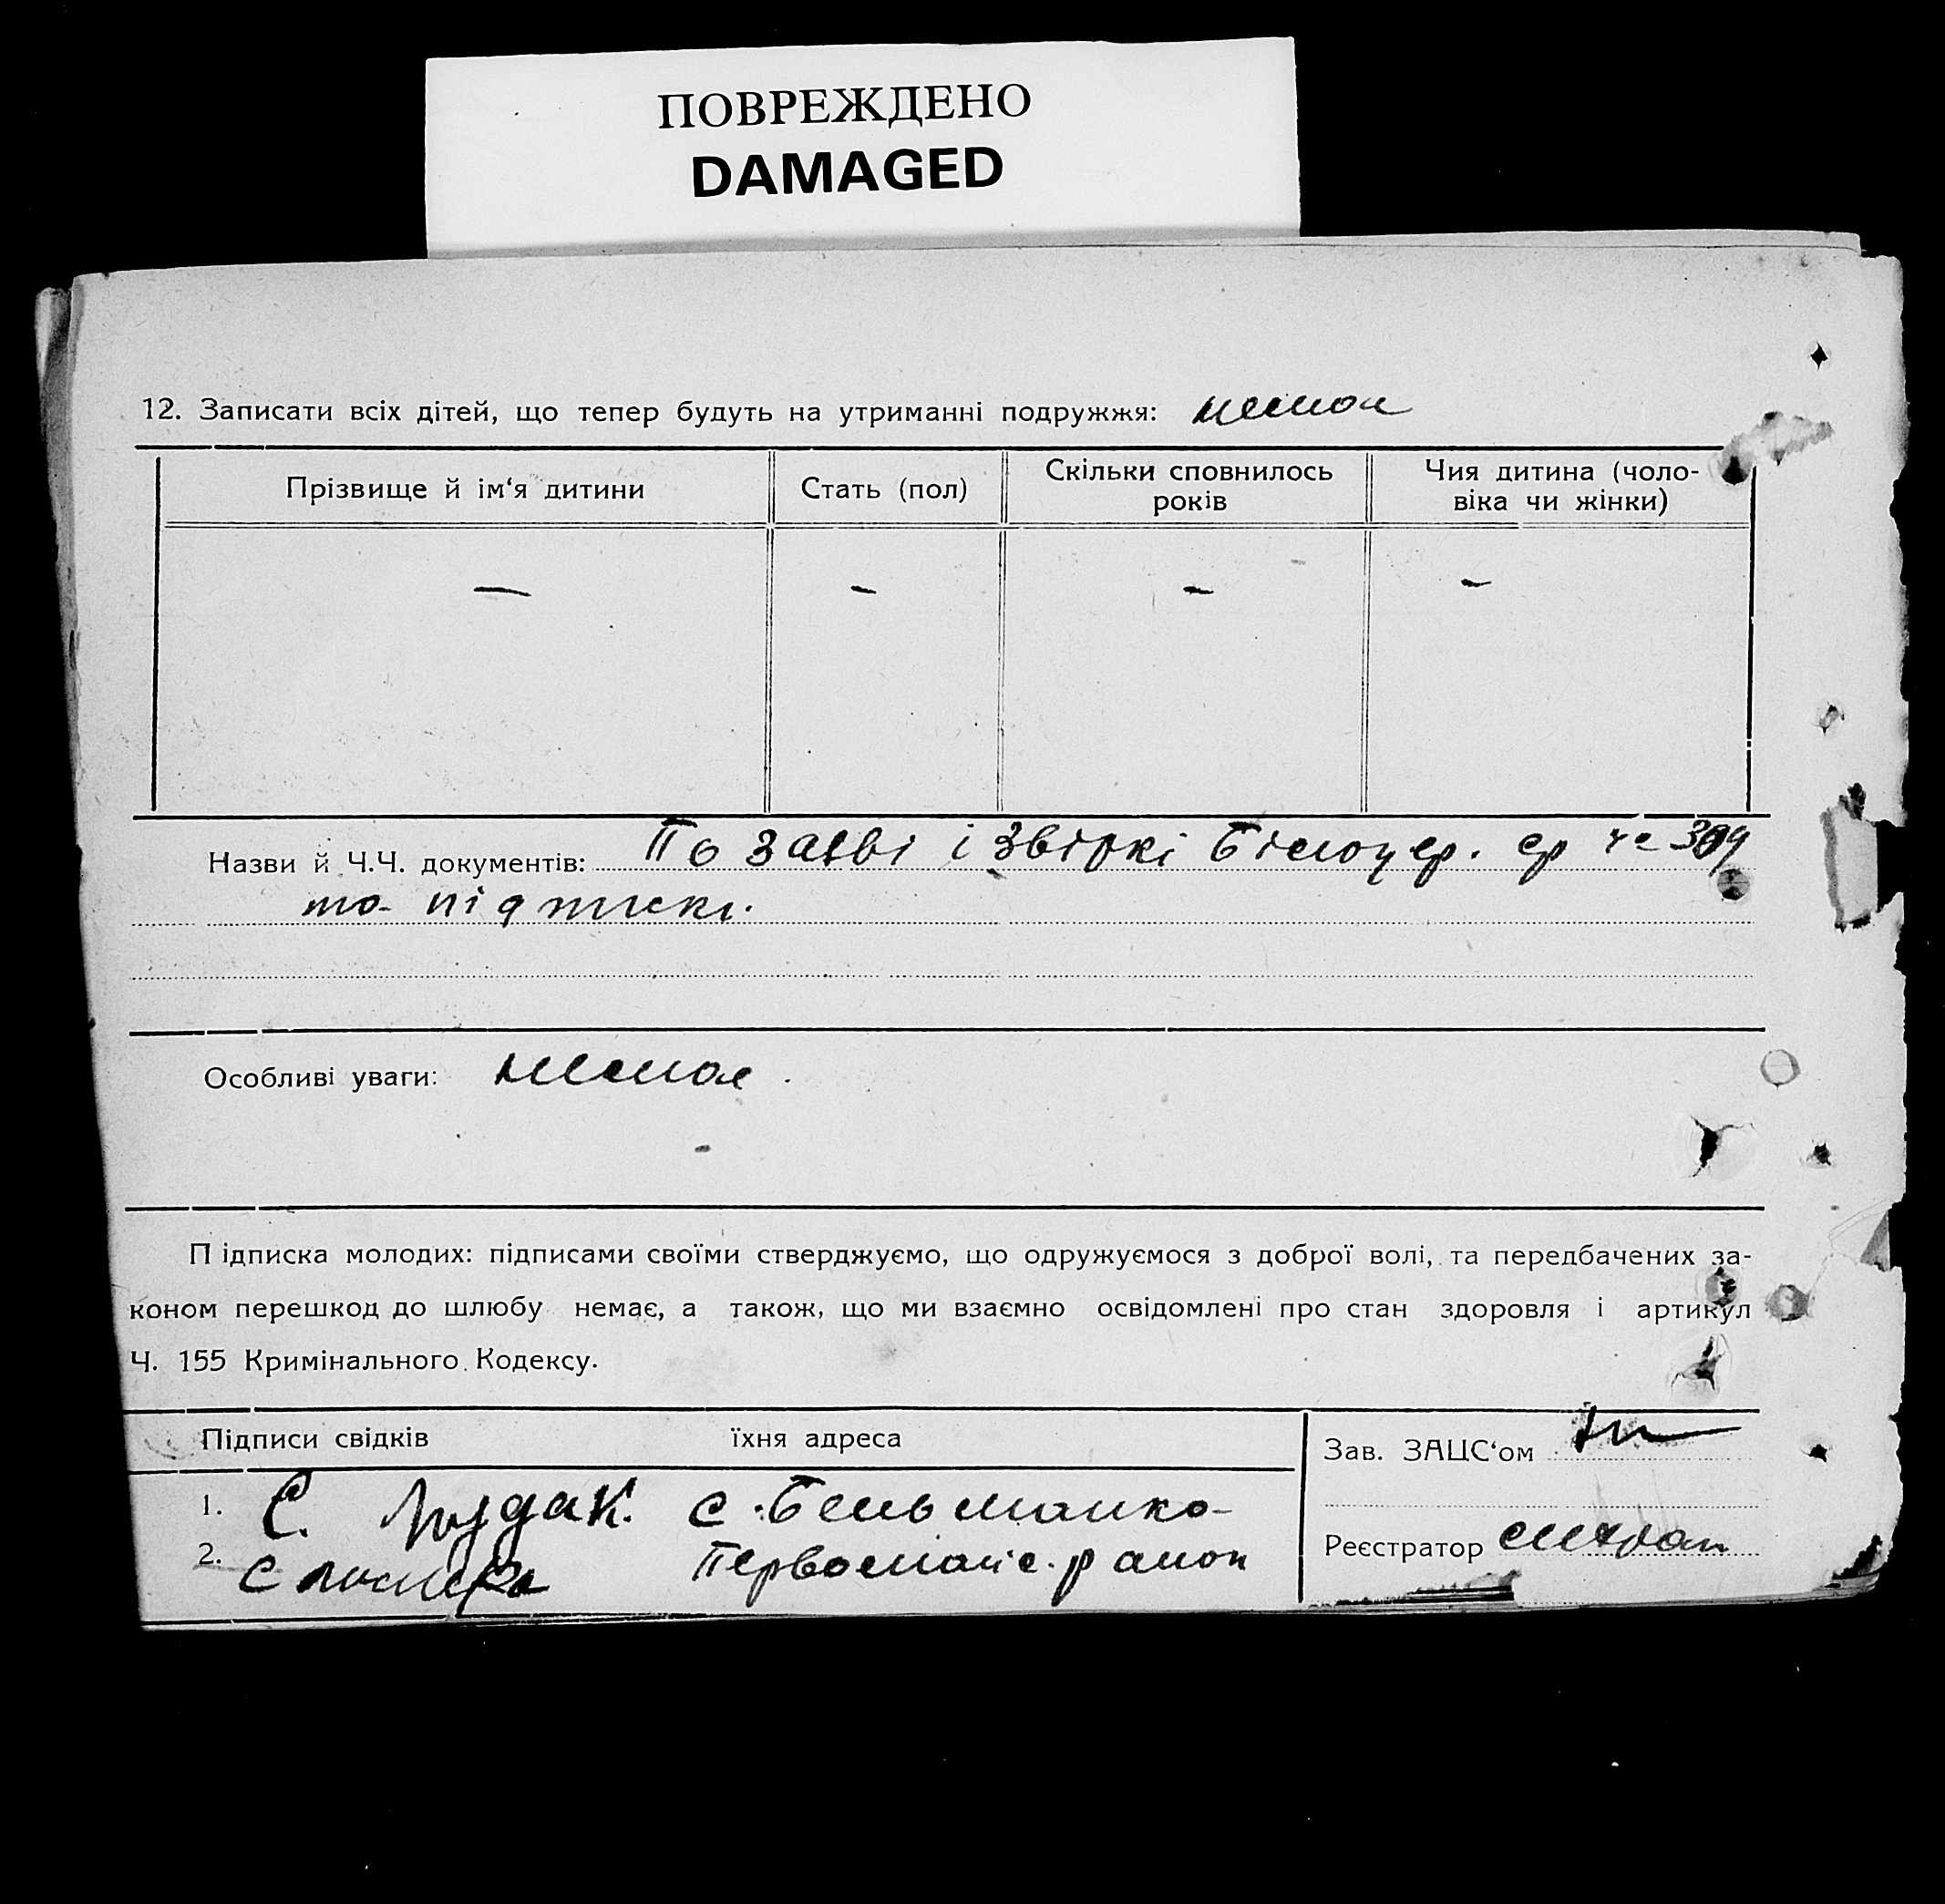 ПОВРЕЖДЕНО
DAMAGED
12. Записати всіх дітей, що тепер будуть на утриманні подружжя: немає
Прізвище й ім‘я дитини Стать (пол) Скільки сповнилось років Чия дитина (чоло-віка чи жінки)
— — — —
Назви й Ч.Ч. документів: По заяві і звіркі Білоцер. ср
та підписки.
Особливі уваги: немає.
Підписка молодих: підписами своїми стверджуємо, що одружуємося з доброї волі, та передбачених за-
коном перешкод до шлюбу немає, а також, що ми взаємно освідомлені про стан здоровля і артикул
Ч. 155 Кримінального Кодексу.
Підписи свідків їхня адреса
Зав. ЗАЦС‘ом
1. С. с.
2. Первомайс. район
Реєстратор